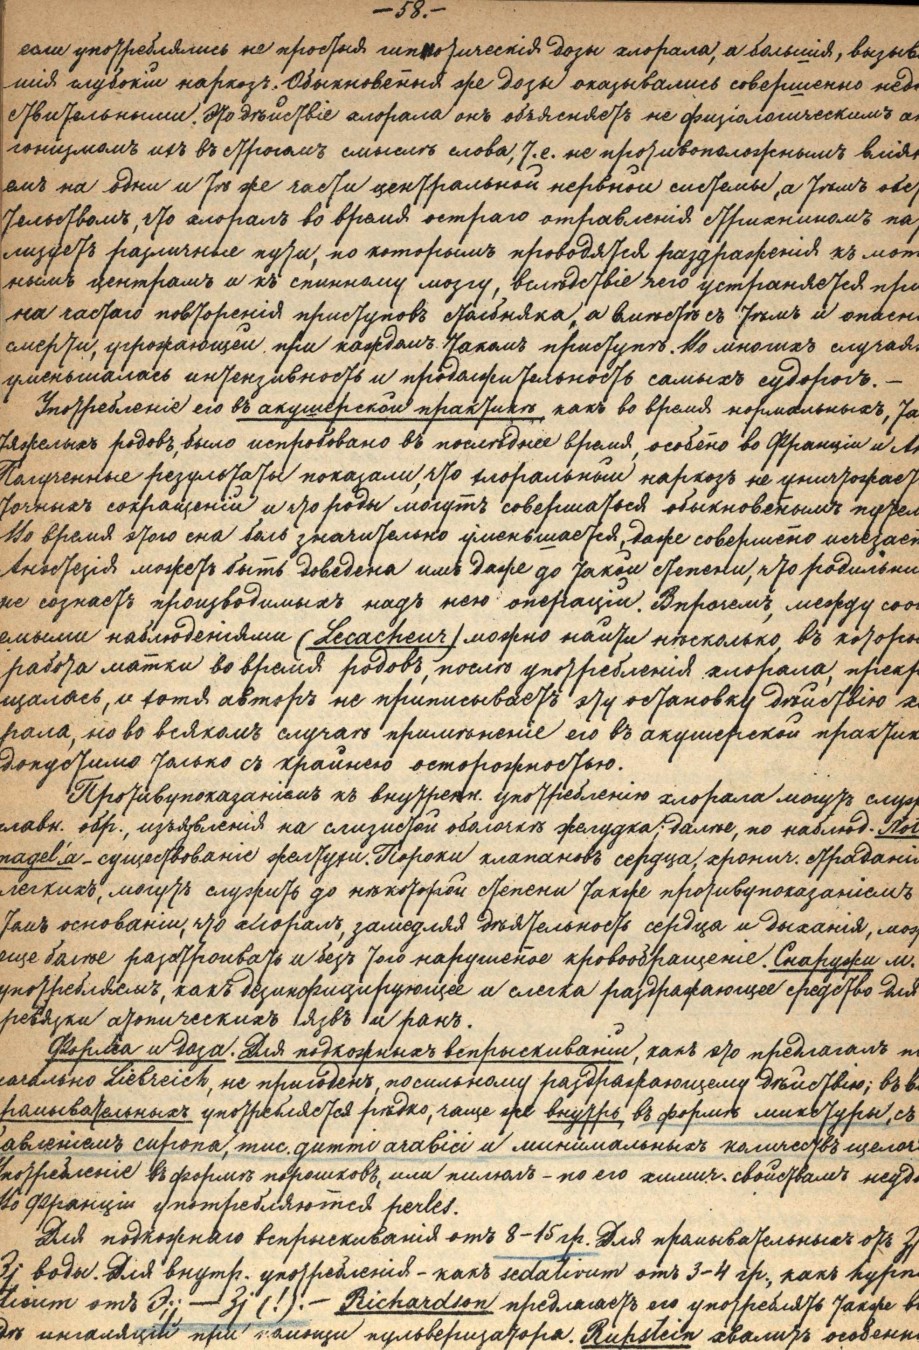 —58.—
если употреблялись не простыя гипнотическія дозы хлорала, а большія, вызыв
шія глубокій наркозъ. Обыкновенныя же дозы оказывались совершенно недѣ
ствительными. Это дѣйствіе хлорала онъ объясняетъ не физіологическимъ ан
гонизмомъ ихъ въ строгомъ смыслѣ слова, т.е. не противоположнымъ влія
емъ на одни и тѣ же части центральной нервной системы, а тѣмъ обст
тельствомъ, что хлоралъ во время остраго отравленія стрихниномъ пар
лизуетъ различные пути, по которымъ проводятся раздраженія къ мот
нымъ центрамъ и къ спинному мозгу, вслѣдствіе чего устраняется при
на частаго повторенія приступовъ столбняка, а вмѣстѣ съ тѣмъ и опасн
смерти, угрожающей при каждомъ такомъ приступѣ. Во многихъ случая
уменьшалась интензивность и продолжительность самыхъ судорогъ. —
Употребленіе его въ акушерской практикѣ, какъ во время нормальныхъ, та
тяжелыхъ родовъ, было испробовано въ послѣднее время, особенно во Франціи и Ан
Полученные результаты показали, что хлоральный наркозъ не уничтожает
точныхъ сокращеній и что роды могутъ совершаться обыкновеннымъ путем
Во время этого сна боль значительно уменьшается, даже совершенно исчезает
Анестезія можетъ быть доведена имъ даже до такой степени, что родильни
не сознаетъ производимыхъ надъ нею операцій. Впрочемъ, между соо
емыми наблюденіями (Lecacheur) можно найти нѣсколько, въ которы
работа матки во время родовъ, послѣ употребленія хлорала, прекр
щалась, и хотя авторъ не приписываетъ эту остановку дѣйствію х
рала, но во всякомъ случаѣ примѣненіе его въ акушерской практик
допустимо только съ крайнею осторожностью.
Противупоказаніемъ къ внутренн. употребленію хлорала могутъ служ
главн. обр., изъявленія на слизистой оболочкѣ желудка; далѣе, по наблюд. Not
nagel'я – существованіе желтухи. Пороки клапановъ сердца, хронич. страданія
легкихъ, могутъ служить до нѣкоторой степени также противупоказаніемъ
томъ основаніи, что хлоралъ, замедляя дѣятельность сердца и дыханія, мож
еще болѣе разстроивать и безъ того нарушенное кровообращеніе. Снаружи м.
употребляемъ, какъ дезинфицирующее и слегка раздражающее средство для
ревязки атоническихъ язвъ и ранъ.
Форма и доза. Для подкожныхъ впрыскиваній, какъ это предлагалъ п
начально Liebreich, не пригоденъ, по сильному раздражающему дѣйствію; въ
промывательныхъ употребляется рѣдко, чаще же внутрь, въ формѣ микстуры, съ
бавленіемъ сиропа, muc. gummi arabici и минимальныхъ количествъ щелоч
Употребленіе въ формѣ порошковъ, или пилюль – по его химич. свойствамъ неудо
Во Франціи употребляются perles.
Для подкожнаго впрыскиванія отъ 8–15 гр. Для промывательныхъ отъ ʒj
ʒj воды. Для внутр. употребленія – какъ sedativum отъ 3–4 гр., какъ hypn
ticum отъ ℈ij — ʒj (!). — Richardson предлагаетъ его употреблять также въ
дѣ ингаляцій при помощи пульверизатора. Rupstein хвалитъ особенн